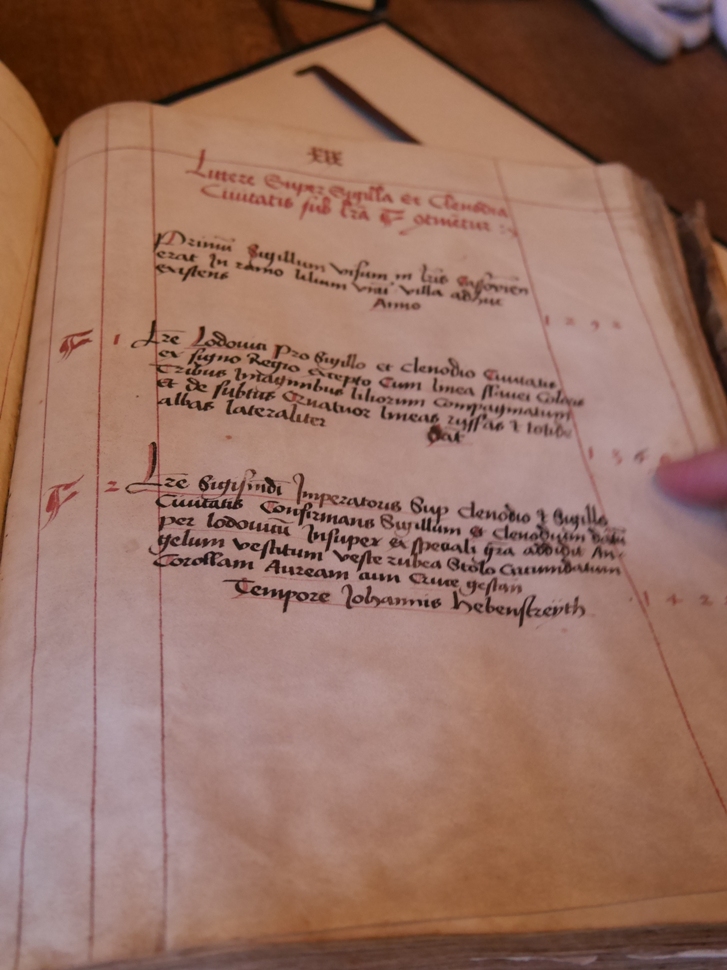 XIX
Littere Super Sigilla et Clenodia
Civitatis sub lrã F
Primũ Sigillum visum in lris
erat In ramo lilium vini villa adhuc
existens
Anno
1 2 9 2
F 1 Lr̃e Lodovici Pro Sigillo et Clenodio Civitatis
ex signo Regio excepto Cum linea flavei Coloris
Tribus Imaginibus liliorum Compaginatum
et de subtus Quatuor lineas ryffas et totidẽ
albas lateraliter
Dat
1 3
F 2 Lr̃e Sigismũdi Imperatoris Sup Clenodio et Sigillo
Civitatis Confirmans Sigillum et Clenodium
per lodovicũ Insuper ex speciali gr̃a addidit An-
gelum vestitum veste rubea Stolo Circumdatum
Corollam Auream cum Cruce gestan
Tempore Johannis hebenstreyth
1 4 2